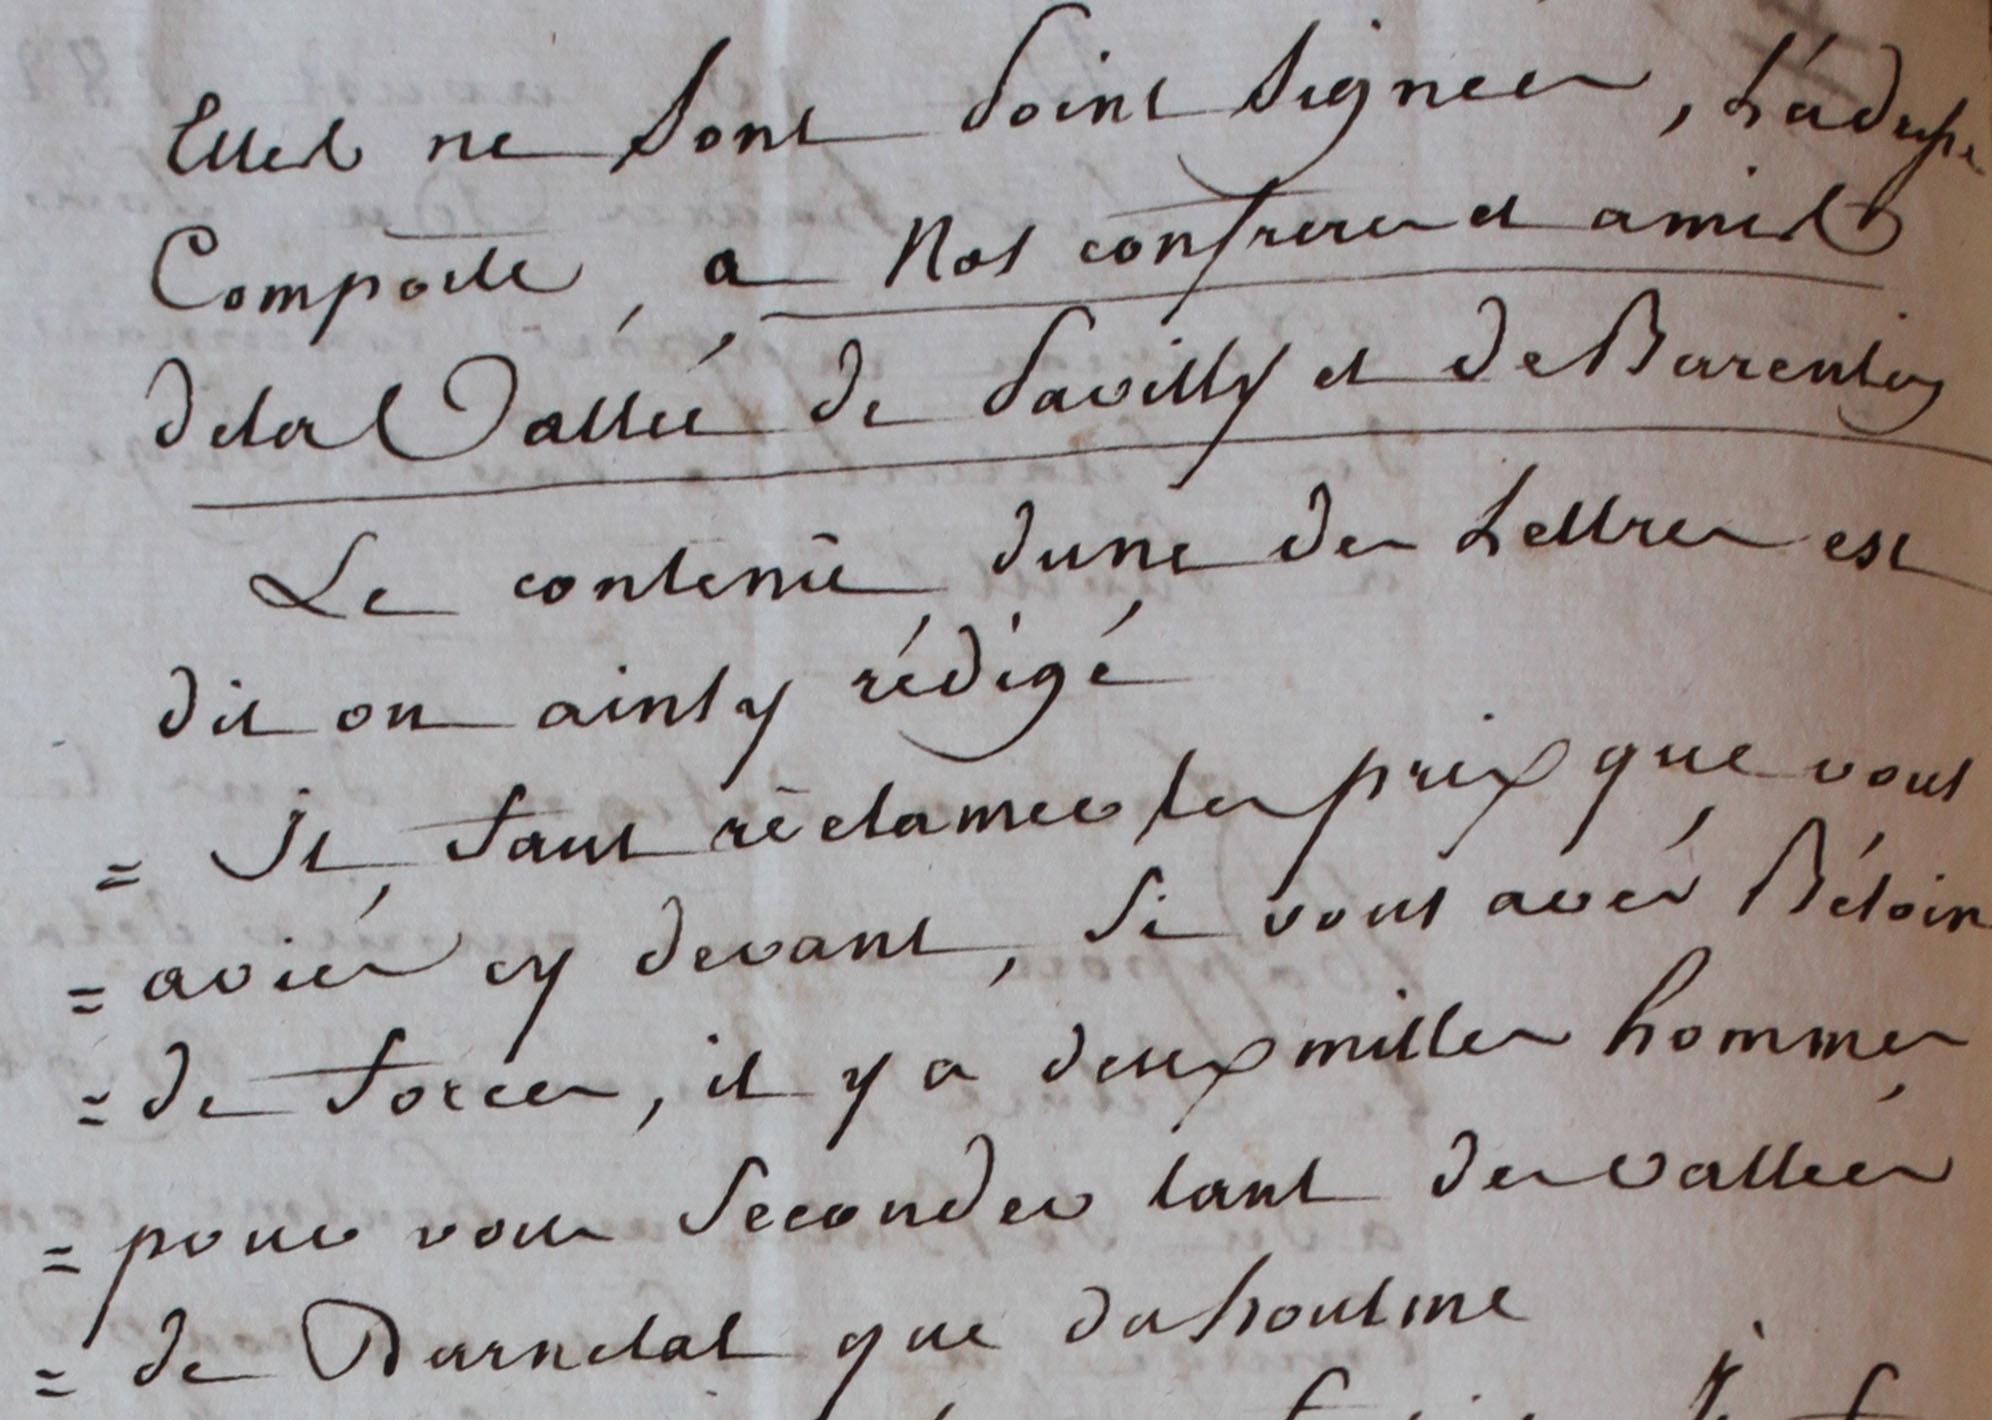 Elles ne sont point signées, L'adresse
Comporte, a Nos confreres et amis
dela Vallée de Pavilly et de Barentin
Le contenu dune des Lettres est
dit on ainsy rédigé
= Il faut réclamer les prix que vous
= aviés cy devant, si vous avés Bésoin
= de forces, il y a deux milles hommes
= pour vous seconder tant des vallées
= de Darnetal que du houlme